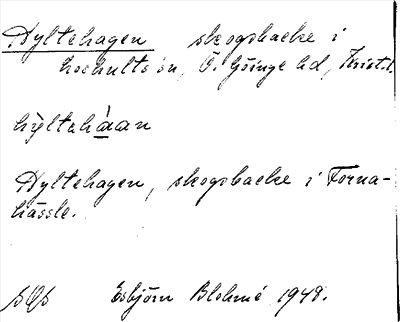 Hyltehagen skogsbacke i
Loshults sn, Ö. Göinge hd, Krist. l.
hỳltahàan
Hyltehagen, skogsbacke i Forna-
hässle.
Esbjörn Blohmé 1948.